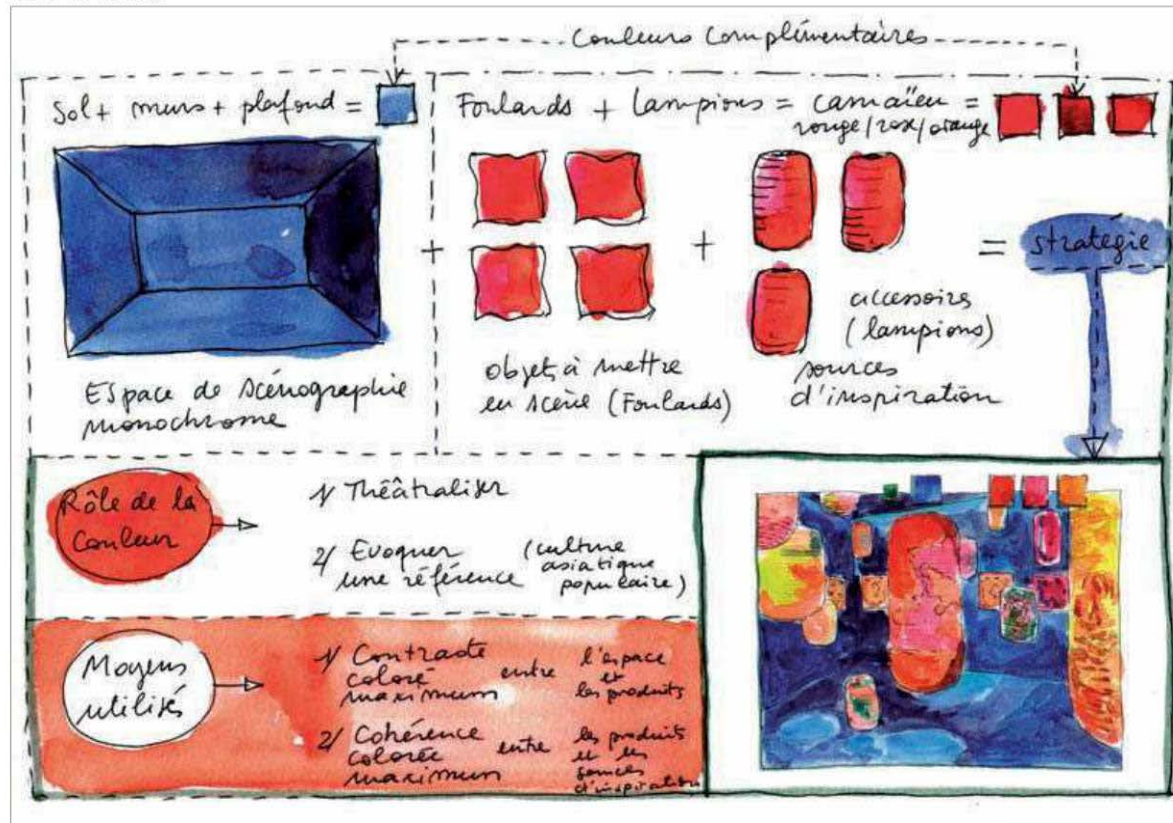 Couleurs Complémentaires
Sol + murs + plafond =
Foulards + Lampions = camaïeu =
rouge/rose/orange
+
+
=
stratégie
Espace de scénographie
monochrome
objets à mettre
en scène (Foulards)
accessoires
(lampions)
sources
d'inspiration
Rôle de la
Couleur
1/ Théâtraliser
2/ Evoquer (culture
une référence asiatique
populaire)
Moyens
utilisés
1/ Contraste
coloré entre l'espace
maximum et
les produits
2/ Cohérence
colorée entre les produits
maximum et les
sources
d'inspiration